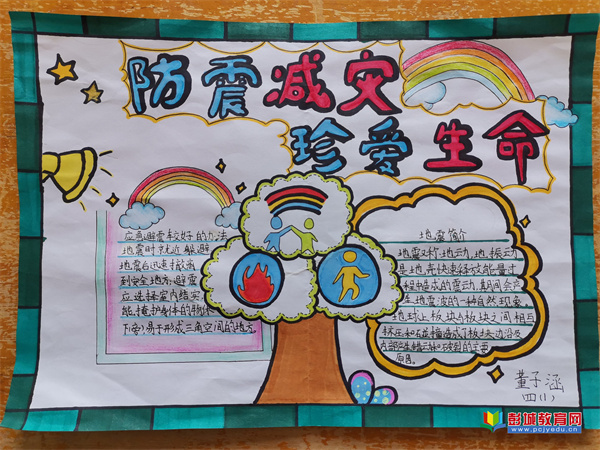 防震减灾
珍爱生命
应急避震较好的办法
地震时就近躲避
地震后迅速撤离
到安全地方,避震
应选择室内结实、
能掩护身体的物体
下(旁)易于形成三角空间的地方。
地震简介
地震又称地动、地振动
是地壳快速释放能量过
程中造成的震动,期间会产
生地震波的一种自然现象。
地球上板块与板块之间相互
挤压和碰撞造成了板块边沿及
原因。
董子涵
四(1)
彭城教育网
www.pcjyedu.cn